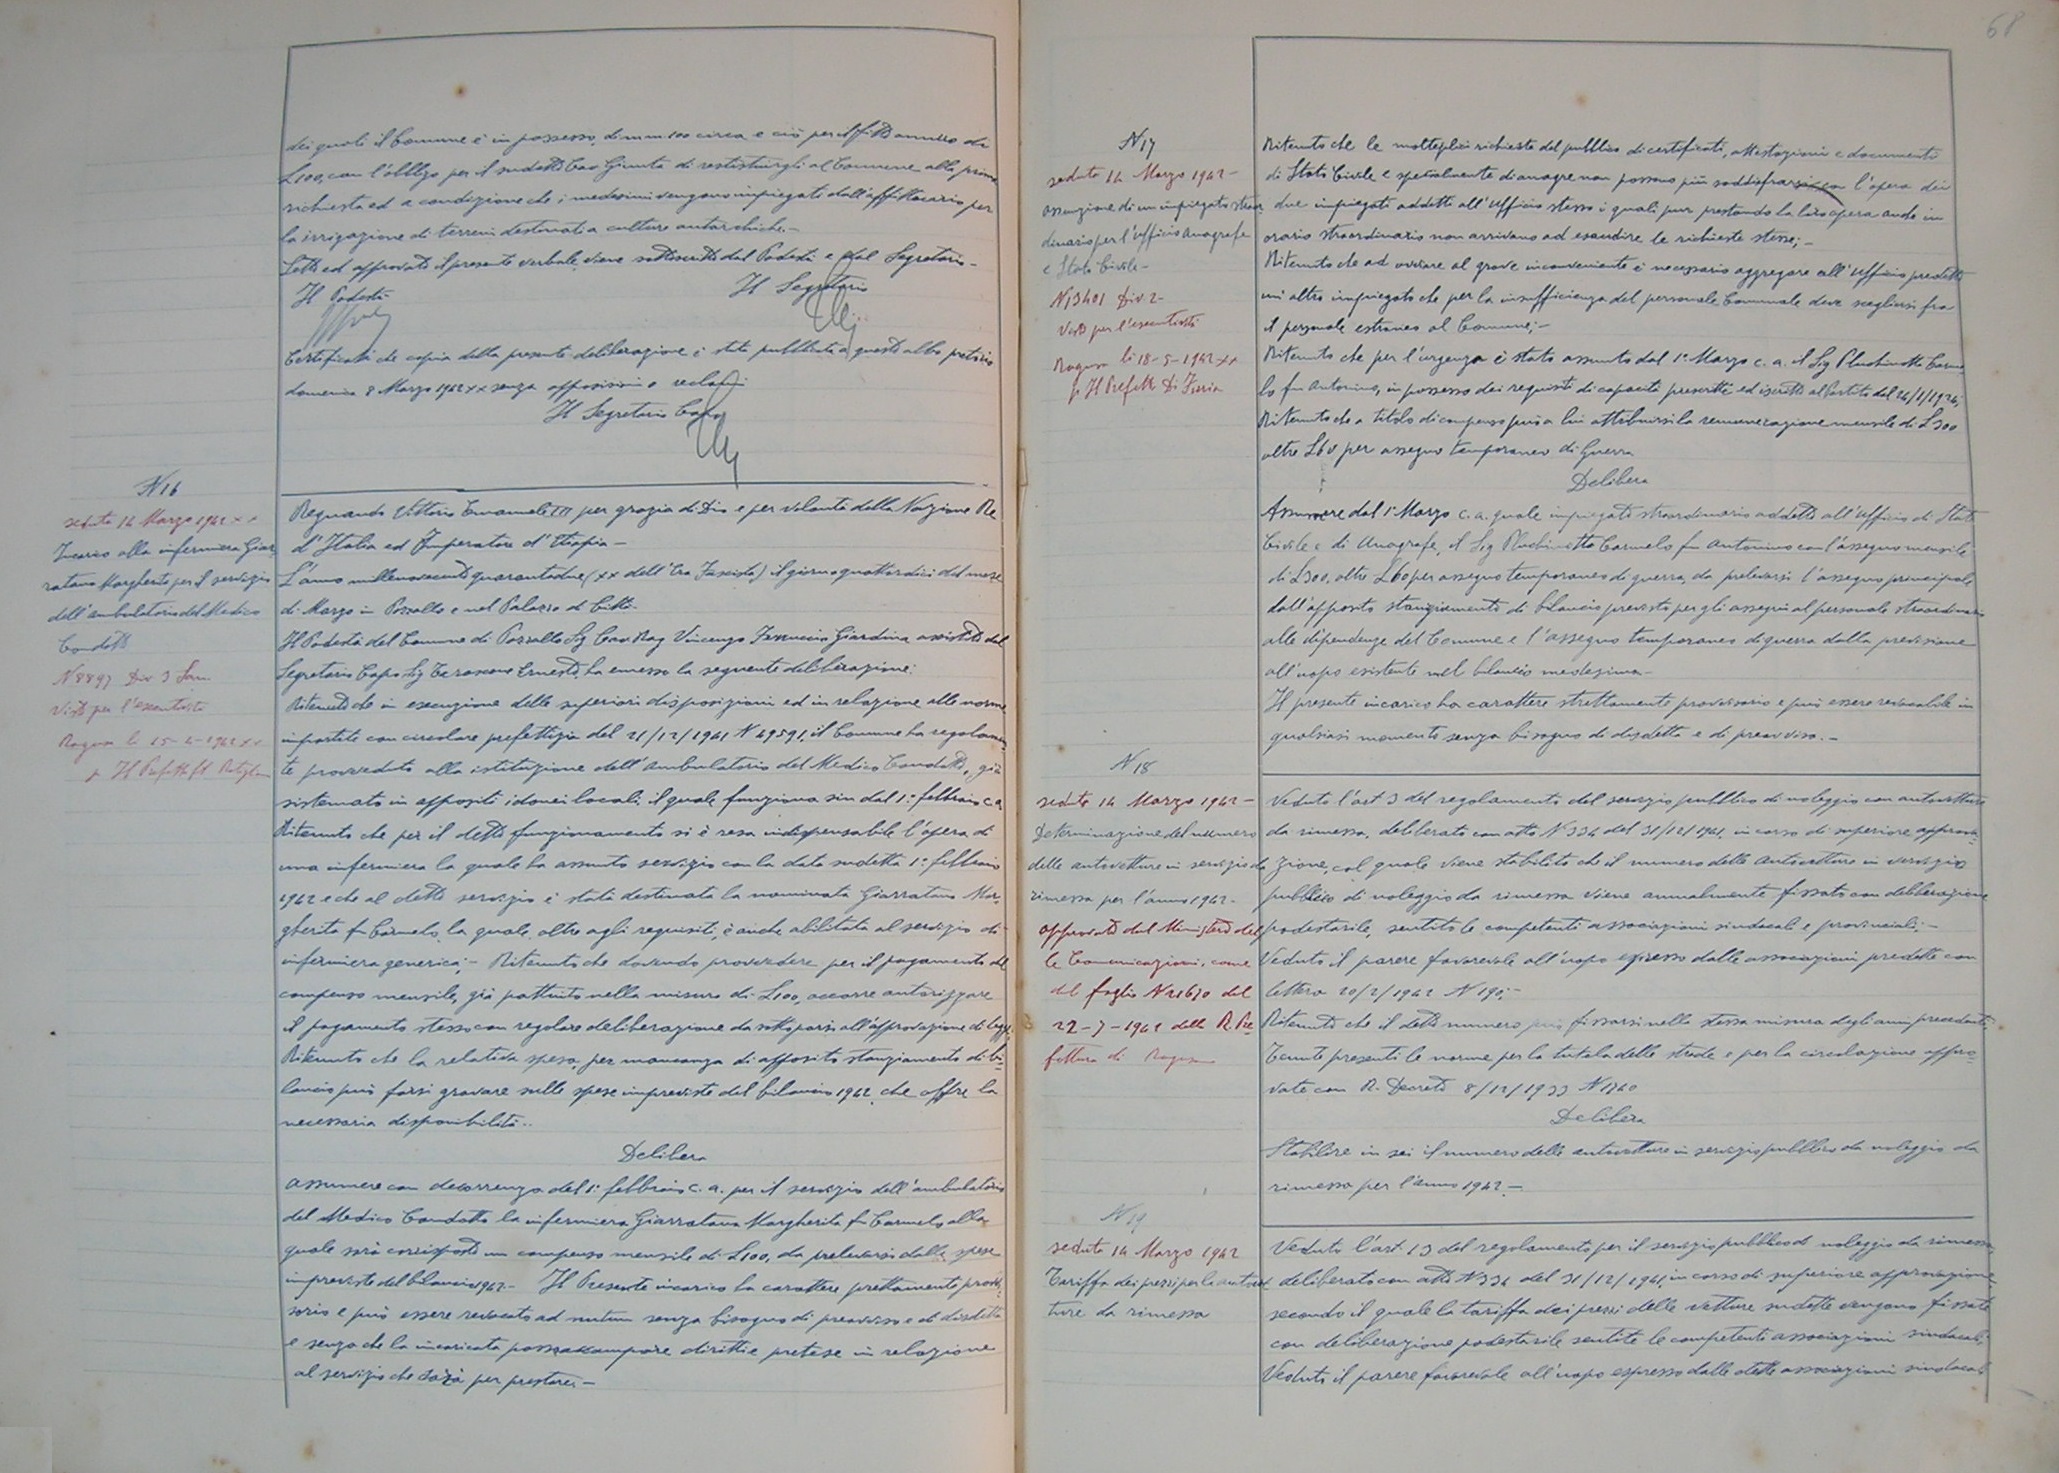 dei quali il Comune è in possesso, di m.m. 100 circa e ciò per il fitto annuo di
L 100, con l'obbligo per il sudetto Cav Giunta di restituirgli al Comune alla prima
richiesta ed a condizione che i medesimi vengano impiegati dall'affittuario per
la irrigazione di terreni destinati a culture autarchiche.-
Letto ed approvato il presente verbale viene sottoscritto dal Podestà e dal Segretario-
Il Podestà
Il Segretario
Certificasi che copia della presente deliberazione è stata pubblicata a questo albo pretorio
domenica 8 Marzo 1942 XX senza opposizioni o reclami
Il Segretario Capo
N 16
seduta 14 Marzo 1942 XX
Incarico alla infermiera Giar
ratana Margherita per il servizio
dell'ambulatorio del Medico
Condotto
N 8897 Div 3 San
Visto per l'esecutività
Ragusa li 15-4-1942 XX
p Il Prefetto
Regnando Vittorio Emanuele III per grazia di Dio e per volontà della Nazione Re
d'Italia ed Imperatore d'Etiopia-
L'anno millenovecentoquarantadue (XX dell'Era Fascista) il giorno quattordici del mese
di Marzo in Pozzallo e nel Palazzo di Città.
Il Podestà del Comune di Pozzallo Sig Cav Rag Vincenzo Ferruccio Giardina assistito dal
Segretario Capo Sig Tarascone Ernesto, ha emesso la seguente deliberazione:
Ritenuto che in esecuzione delle superiori disposizioni ed in relazione alle norme
impartite con circolare prefettizia del 21/12/1941 N 49591, il Comune ha regolamen
te provveduto alla istituzione dell'ambulatorio del Medico Condotto, già
sistemato in appositi idonei locali, il quale funziona sin dal 1° febbraio c.a.
Ritenuto che per il detto funzionamento si è resa indispensabile l'opera di
una infermiera la quale ha assunto servizio con la data sudetta 1° febbraio
1942 e che al detto servizio è stata destinata la nominata Giarratana Mar
gherita fu Carmelo, la quale, oltre agli requisiti, è anche abilitata al servizio di
infermiera generica;- Ritenuto che dovendo provvedere per il pagamento del
compenso mensile, già pattuito nella misura di L100, occorre autorizzare
il pagamento stesso con regolare deliberazione da sottoporsi all'approvazione di legge
Ritenuto che la relativa spesa, per mancanza di apposito stanziamento di bi-
lancio può farsi gravare sulle spese impreviste del bilancio 1942, che offre la
necessaria disponibilità..
Delibera
assumere con decorrenza dal 1° febbraio c. a. per il servizio dell'ambulatorio
del Medico Condotto la infermiera Giarratana Margherita fu Carmelo alla
quale sarà corrisposto un compenso mensile di L100, da prelevarsi dalle spese
impreviste del bilancio 1942.- Il Presente incarico ha carattere prettamente provvi
sorio e può essere revocato ad nutum senza bisogno di preavviso e di disdetta
e senza che la incaricata possa accampare diritti e pretese in relazione
al servizio che sarà per prestare.-
68
N 17
seduta 14 Marzo 1942-
assunzione di un impiegato straor
dinario per l'ufficio Anagrafe
e Stato Civile-
N 13401 Div 2-
Visto per l'esecutività
Ragusa li 18-5-1942 XX
p Il Prefetto
Ritenuto che le molteplici richieste del pubblico di certificati, attestazioni e documenti
di Stato Civile e specialmente di anagre non possono più soddisfarsi con l'opera dei
due impiegati addetti all'Ufficio stesso i quali pur prestando la loro opera ando in
orario straordinario non arrivano ad esaudire le richieste stesse;-
Ritenuto che ad ovviare al grave inconveniente è necessario aggregare all'Ufficio predetto
un altro impiegato che per la insufficienza del personale Comunale deve scegliersi fra
il personale estraneo al Comune;-
Ritenuto che per l'urgenza è stato assunto dal 1° Marzo c. a. il Sig Pluchinotta Carme
lo fu Antonino, in possesso dei requisiti di capacità prescritti ed iscritto al Partito dal 24/1/1926;
Ritenuto che a titolo di compenso può a lui attribuirsi la remunerazione mensile di L300
oltre L60 per assegno temporaneo di Guerra
Delibera
Assumere dal 1° Marzo c. a. quale impiegato straordinario addetto all'Ufficio di Stato
Civile e di Anagrafe, il Sig Pluchinotta Carmelo fu Antonino con l'assegno mensile
di L300, oltre L60 per assegno temporaneo di guerra, da prelevarsi l'assegno principale
dall'apposito stanziamento di bilancio previsto per gli assegni al personale straordinario
alle dipendenze del Comune e l'assegno temporaneo di guerra dalla previsione
all'uopo esistente nel bilancio medesimo-
Il presente incarico ha carattere strettamente provvisorio e può essere revocabile in
qualsiasi momento senza bisogno di disdetta e di preavviso.-
N 18
seduta 14 Marzo 1942-
Determinazione del numero
delle autovetture in servizio da
rimessa per l'anno 1942-
approvato dal Ministero del
le Comunicazioni, come
dal foglio N 21670 del
22-7-1942 della R. Pre
fettura di Ragusa
Veduto l'art 3 del regolamento del servizio pubblico di noleggio con autovetture
da rimessa, deliberato con atto N 334 del 31/12/1941, in corso di superiore approva
zione, col quale viene stabilito che il numero delle autovetture in servizio
pubblico di noleggio da rimessa viene annualmente fissato con deliberazione
podestarile, sentito le competenti associazioni sindacali e provinciali;-
Veduto il parere favorevole all'uopo espresso dalle associazioni predette con
lettera 20/2/1942 N 190;-
Ritenuto che il detto numero può fissarsi nella stessa misura degli anni precedenti;
Tenute presenti le norme per la tutela delle strade e per la circolazione appro-
vate con R. Decreto 8/12/1933 N 1740
Delibera
Stabilire in sei il numero delle autovetture in servizio pubblico da noleggio da
rimessa per l'anno 1942.-
N 19
seduta 14 Marzo 1942
Tariffa dei prezzi per le autovet
ture da rimessa
Veduto l'art. 13 del regolamento per il servizio pubblico di noleggio da rimessa,
deliberato con atto N 334 del 31/12/1941, in corso di superiore approvazione
secondo il quale la tariffa dei prezzi delle vetture sudette vengono fissate
con deliberazione podestarile sentite le competenti associazioni sindacali;
Veduto il parere favorevole all'uopo espresso dalle dette associazioni sindacali